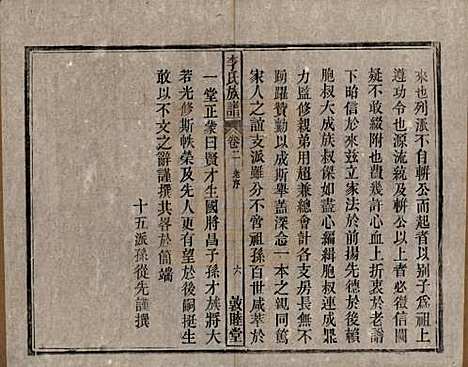 來也列派不自輧公而起者以別子為祖上
遵功令也源流統及輧公以上者必徵信闕
疑不敢綴附也費幾許心血上折衷於老譜
下啟佑於來茲立家法於前揚先德於後賴
胞叔大成族叔傑如盡心編緝胞叔連成鼎
力監修親弟用超兼總會計各支房長無不
踴躍贊勷以成斯舉蓋深念一本之親同篤
家人之誼支派雖分不啻祖孫百世咸萃於
李氏族譜
卷二
老序
六
敦睦堂
一堂正蒙曰賢才生國將昌子孫才族將大
若光修斯帙榮及先人更有望於後嗣挺生
敢以不文之辭謹撰其畧於簡端
十五派孫後先謹撰